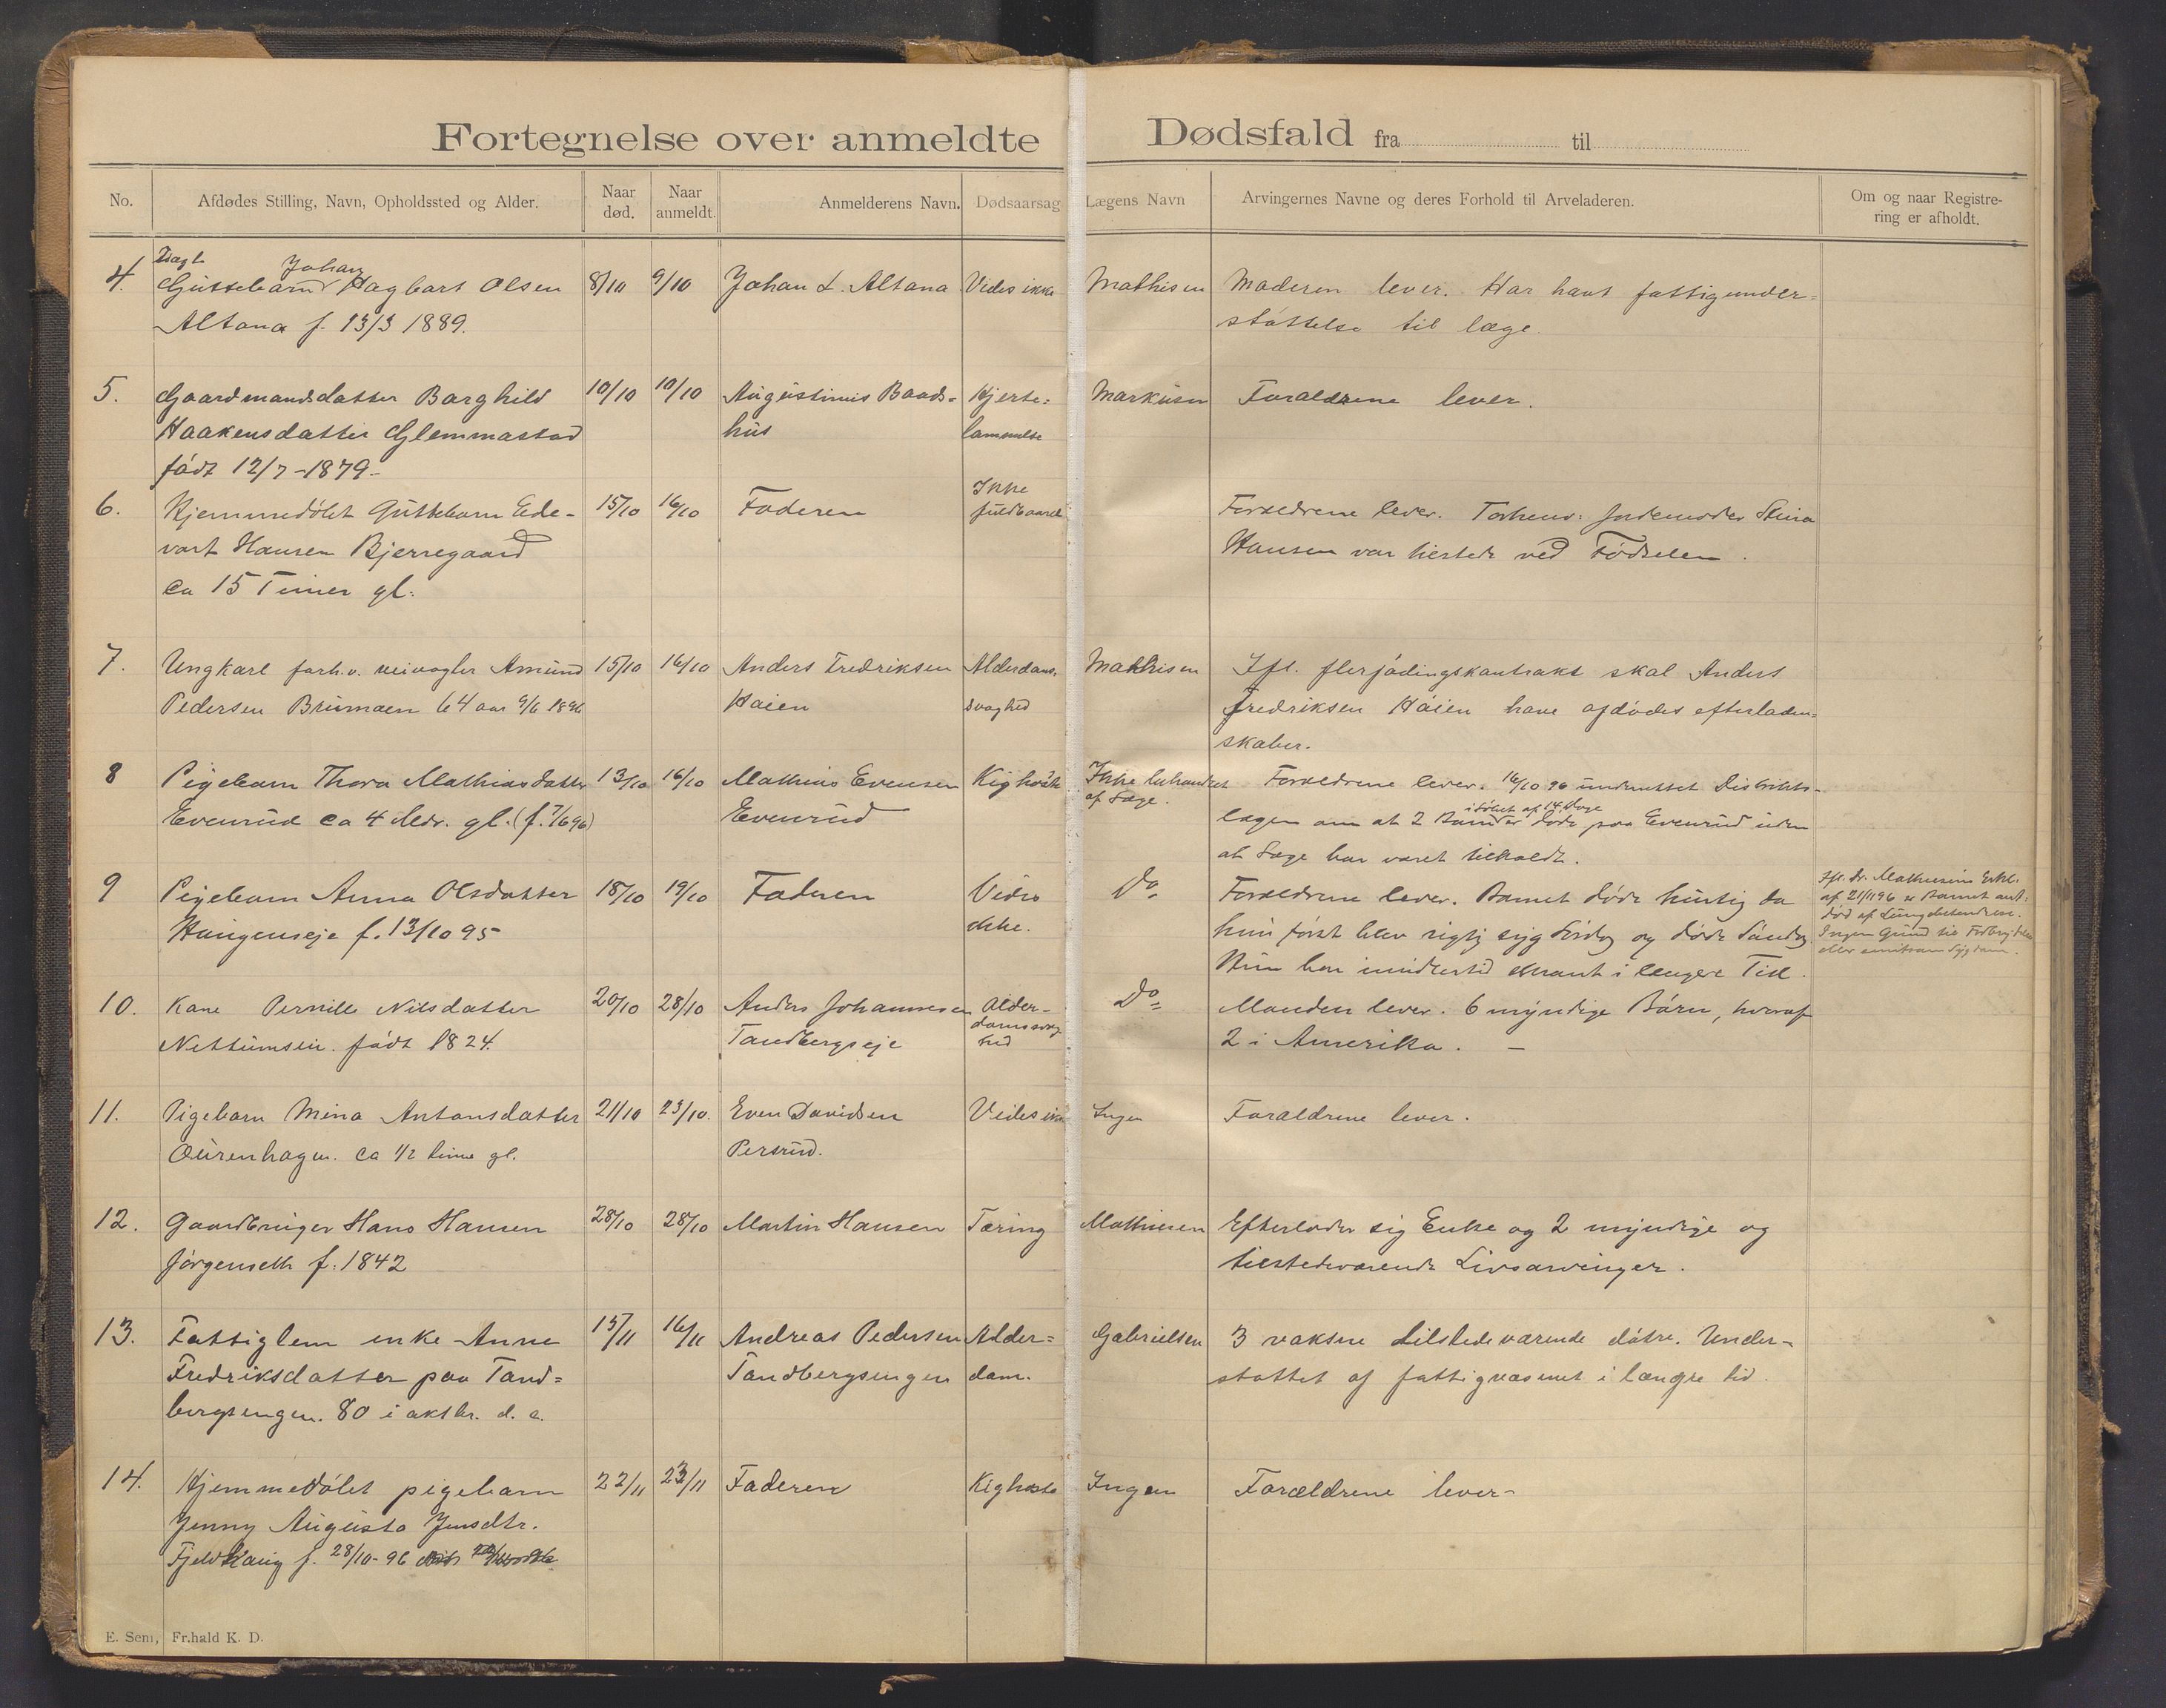 Fortegnelse over anmeldte Dødsfald fra til
No. Afdødes Stilling, Navn, Opholdssted og Alder. Naar død. Naar anmeldt. Anmelderens Navn. Dødsaarsag Lægens Navn Arvingernes Navne og deres Forhold til Arveladeren. Om og naar Registrering er afholdt.
Johan
4. Guttebarn Dagbart Olsen 8/10 9/10 Johan L. Altana Vides ikke Mathisen Moderen lever. Har havt fattigunder=
Altana f. 13/3 1889. støttelse til læge.
5. Gaardmandsdatter Borghild 10/10 10/10 Augustinus Baads= Hjerte= Markusen Forældrene lever.
Haakensdatter Glemmastad hus lammelse
født 12/7-1879-
Ikke
6. Hjemmedøbt Guttebarn Ede- 15/10 16/10 Faderen fuldbaaret Forældrene lever. Jordemoder Stina
vart Hansen Bjerregaard Hansen var tilstede ved Fødselen.
ca 15 Timer gl.
7. Ungkarl forh.v. veivogter Amund 15/10 16/10 Anders Fredriksen Alderdoms. Mathisen Ifl. flerføringskontrakt skal Anders
Pedersen Brumoen 64 aar 9/6 1896 Haien svaghed Fredriksen Haien have afdødes efterladen=
skaber.
8 Pigebarn Thora Mathiasdatter 13/10 16/10 Mathias Evensen Kighoste Ikke behandlet Forældrene lever. 16/10 96 underrettet Distrikts-
Evenrud ca 4 Mdr. gl. (f. 7/6 96) Evenrud af Læge. i løbet af 14 Dage
lægen om at 2 Børn døde paa Evenrud uden
at Læge har været tilkaldt.
9 Pigebarn Anna Olsdatter 18/10 19/10 Faderen Vides Do Forældrene lever. Barnet døde hurtig da Ifl. Dr. Mathisens Erkl.
Haugenseje f. 13/10 95 ikke. hun først blev rigtig syg Lørdag og døde Søndag af 21/11 96 er Barnet ant.
Hun har imidlertid skrant i længere Tid. død af Lungebetændelse.
Ingen Grund til
eller smitsom Sygdom.
10. Kone Pernille Nilsdatter 20/10 28/10 Anders Johannesen Alder- Do Manden lever. 6 myndige Børn, hvoraf
Nettumseie. født 1824. Tandbergseje domssvag 2 i Amerika. –
hed
11. Pigebarn Mina Antonsdatter 21/10 23/10. Even Davidsen Vides ikke Ingen Forældrene lever.
Ourenhagen. ca 1/2 time gl. Persrud.
12. Gaardbruger Hans Hansen 28/10 28/10 Martin Hansen Tæring Mathiesen Efterlader sig Enke og 2 myndige og
Jørgenseth f. 1842 tilstedeværende Livsarvinger.
13. Fattiglem enke Anne 15/11 16/11 Andreas Pedersen Alder= Gabrielsen 3 voksne tilstedeværende døtre. Under-
Fredriksdatter paa Tand= Tandbergsengen dom. støttet af fattigvæsenet i længre tid.
bergsengen. 80 i oktbr. d. a.
14. Hjemmedøbt pigebarn 22/11 23/11 Faderen Kighoste Ingen Forældrene lever-
Jenny Augusta Jensdtr.
Fjeldhaug f. 28/10-96
E. Sem, Fr.hald K. D.